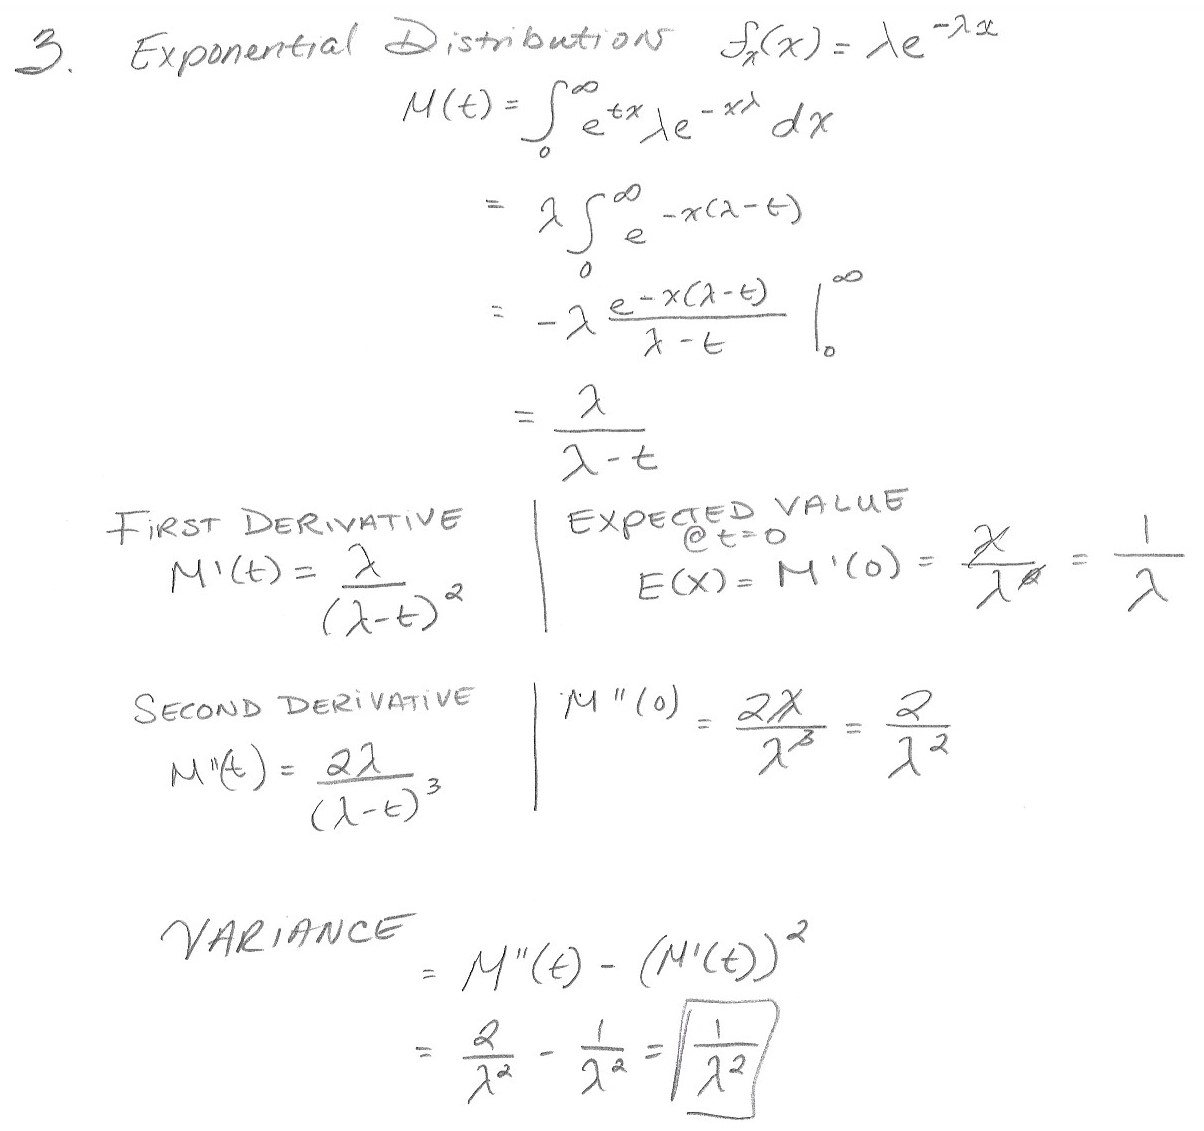 3. Exponential Distributions fₓ(x) = λe^{-λx}
M(t) = ∫₀^∞ e^{tx} λe^{-xλ} dx
= λ ∫₀^∞ e^{-x(λ-t)}
= -λ \frac{e^{-x(λ-t)}}{λ-t} |₀^∞
= \frac{λ}{λ-t}
FIRST DERIVATIVE
M'(t) = \frac{λ}{(λ-t)^2}
EXPECTED VALUE
@ t=0
E(X) = M'(0) = \frac{λ}{λ^2} = \frac{1}{λ}
SECOND DERIVATIVE
M''(t) = \frac{2λ}{(λ-t)^3}
M''(0) = \frac{2λ}{λ^3} = \frac{2}{λ^2}
VARIANCE
= M''(t) - (M'(t))^2
= \frac{2}{λ^2} - \frac{1}{λ^2} = \frac{1}{λ^2}